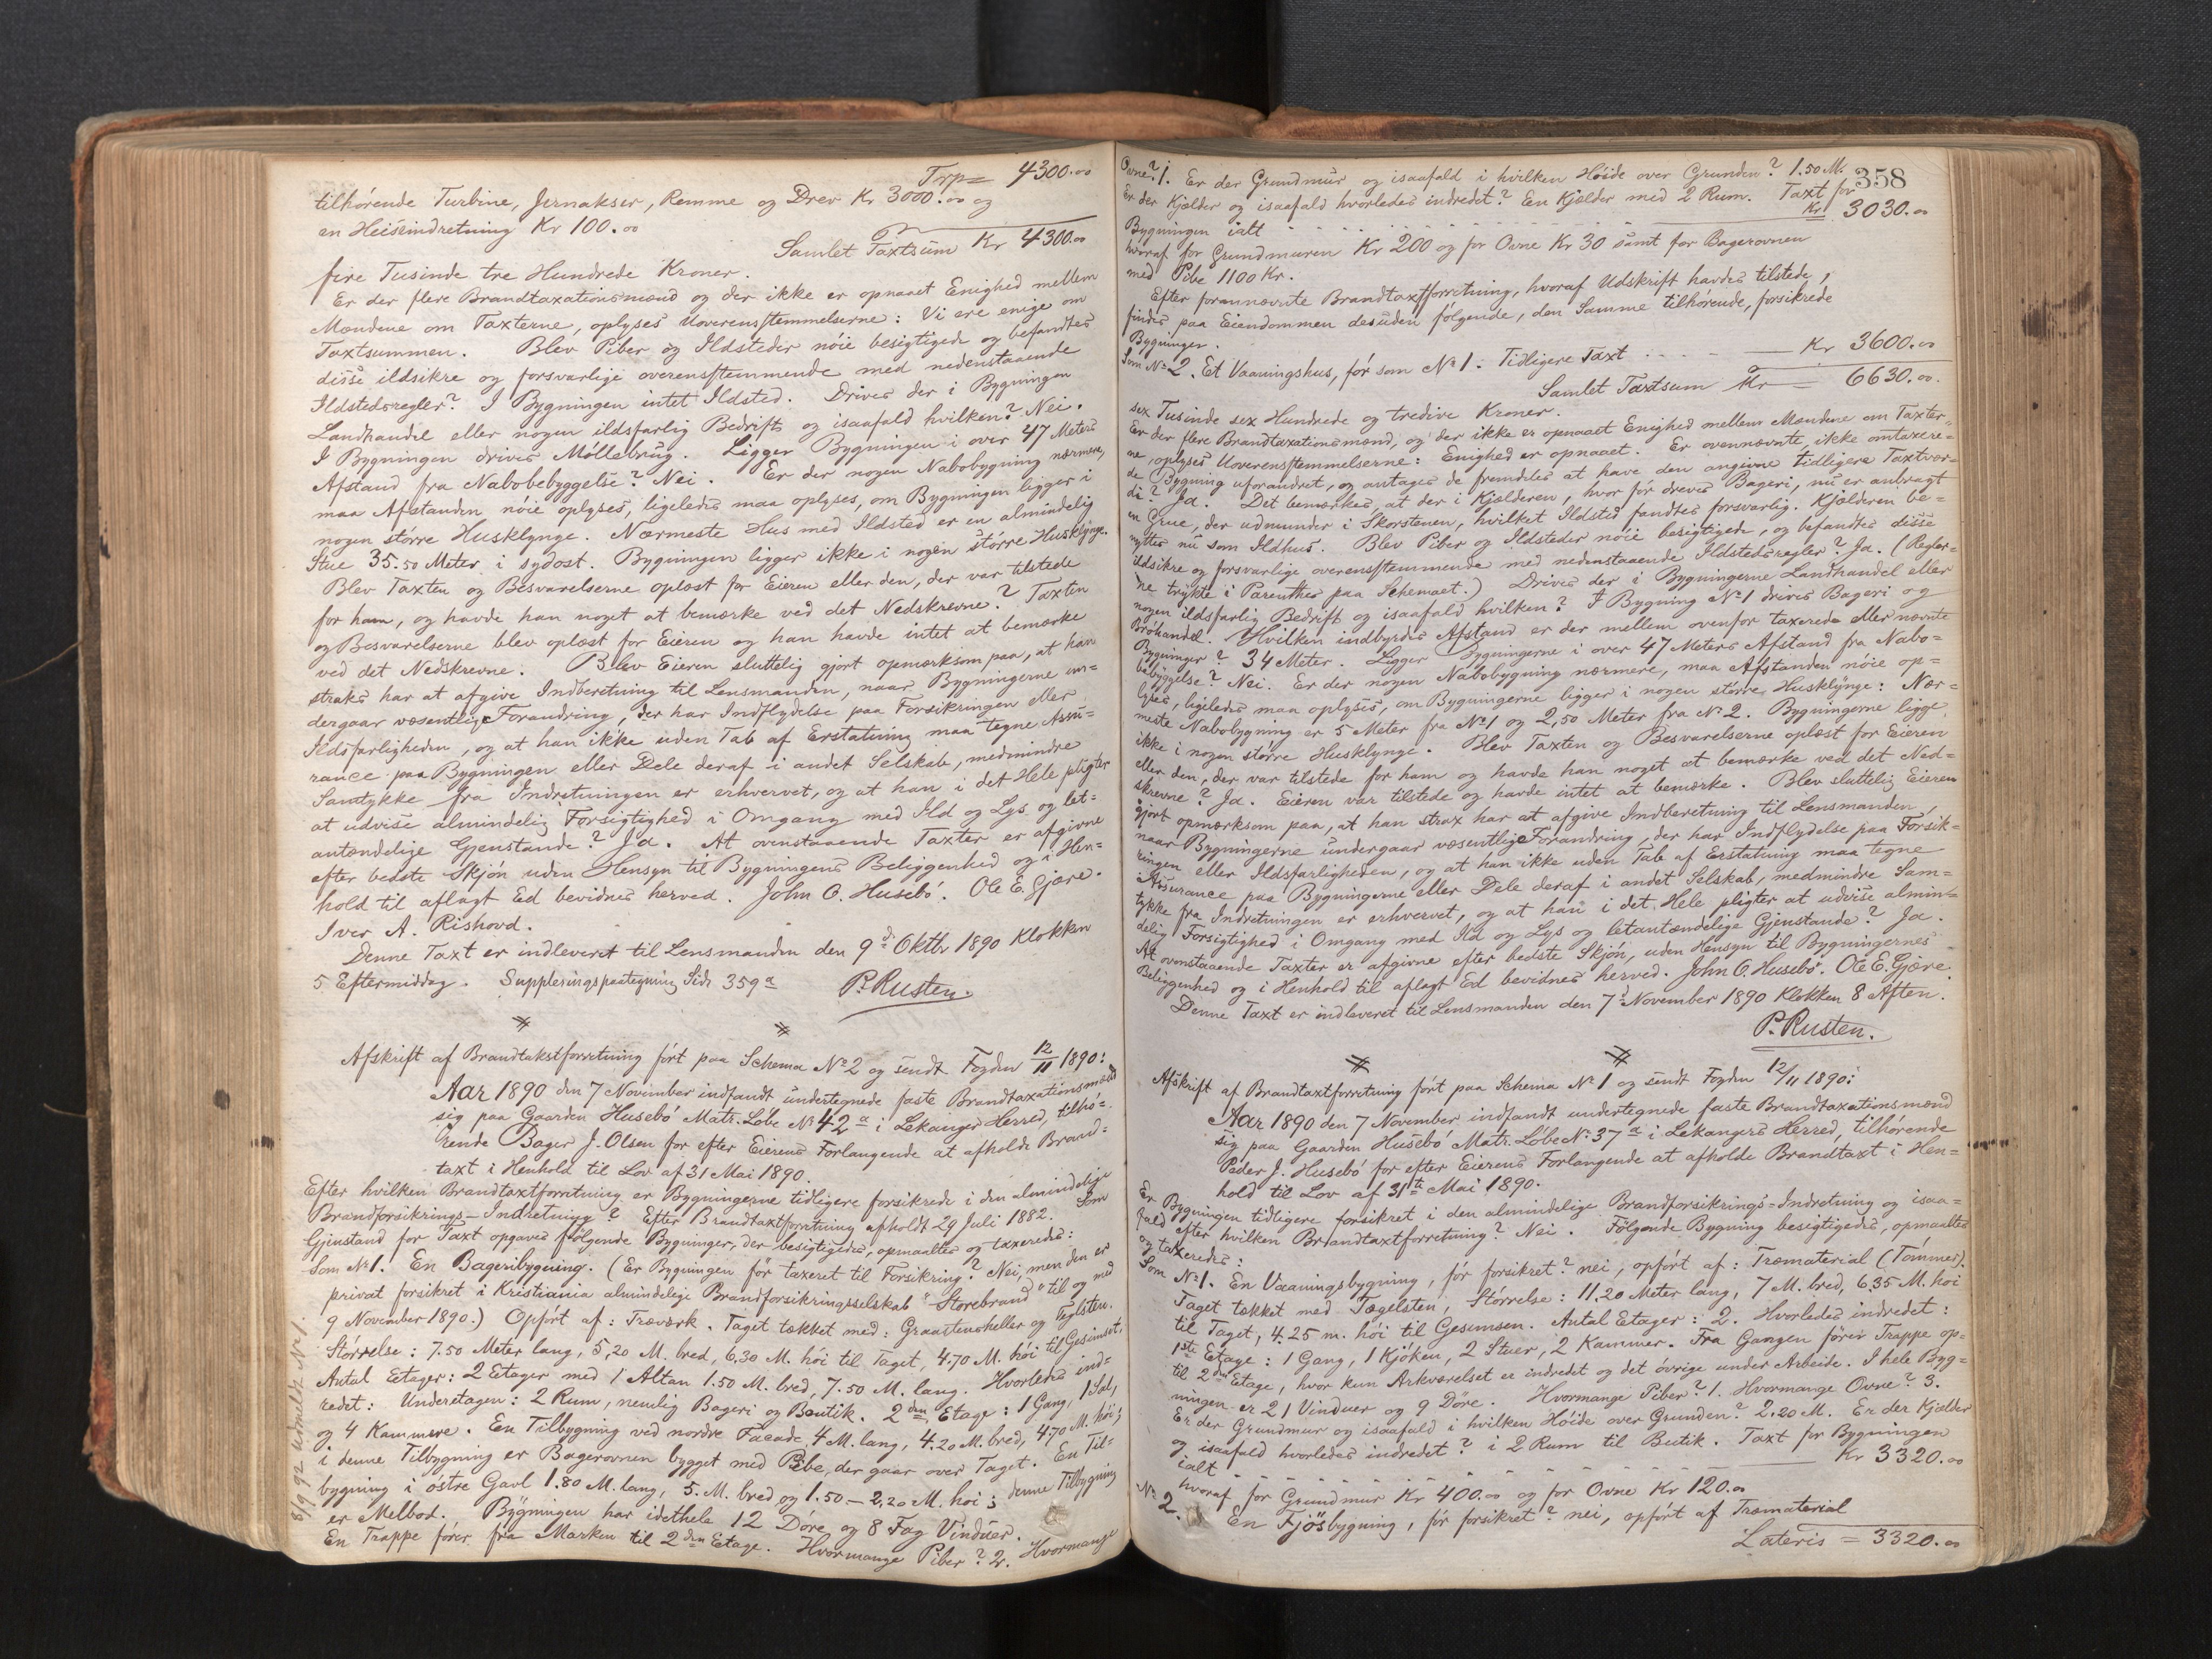 Trp= 4300.00
tilhørende Turbine, Jernakser, Remme og Drev Kr 3000.00 og
en Heiseindretning Kr 100.00
Samlet Taxtsum Kr 4300.00
fire Tusinde tre Hundrede Kroner.
Er der flere Brandtaxationsmænd og der ikke er opnaaet Enighed mellem
Mændene om Taxterne, oplyses Uoverensstemmelserne: Vi ere enige om
Taxtsummen. Blev Piber og Ildsteder nøie besigtigede og befandtes
disse ildsikre og forsvarlige overensstemmende med nedenstaaende
Ildstedsregler? I Bygningen intet Ildsted. Drives der i Bygningen
Landhandel eller nogen ildsfarlig Bedrift og isaafald hvilken? Nei.
I Bygningen drives Møllebrug. Ligger Bygningen i over 47 Meters
Afstand fra Nabobebyggelse? Nei. Er der nogen Nabobygning nærmere,
maa Afstanden nöie oplyses, ligeledes maa oplyses, om Bygningen ligger i
nogen större Husklynge. Nærmeste Hus med Ildsted er en almindelig
Stue 35.50 Meter i sydost. Bygningen ligger ikke i nogen större Husklynge.
Blev Taxten og Besvarelserne oplæst for Eieren eller den, der var tilstede
for ham, og havde han noget at bemærke ved det Nedskrevne? Taxten
og Besvarelserne blev oplæst for Eieren og han havde intet at bemærke
ved det Nedskrevne. Blev Eieren sluttelig gjort opmærksom paa, at han
straks har at afgive Indberetning til Lensmanden, naar Bygningerne un=
dergaar væsentlige Forandring, der har Indflydelse paa Forsikringen eller
Ildsfarligheden, og at han ikke uden Tab af Erstatning maa tegne Assu=
rance paa Bygningen eller Dele deraf i andet Selskab, medmindre
Samtykke fra Indretningen er erhvervet, og at han i det Hele pligter
at udvise almindelig Forsigtighed i Omgang med Ild og Lys og let=
antændelige Gjenstande? Ja. At ovenstaaende Taxter er afgivne
efter bedste Skjön uden Hensyn til Bygningens Beliggenhed og i Hen=
hold til aflagt Ed bevidnes herved. John O. Husebö. Ole E. Gjære.
Iver A. Rishovd.
Denne Taxt er indleveret til Lensmanden den 9de Oktbr 1890 Klokken
5 Eftermiddag. Suppleringspaategning Side 359a P. Rusten.
Afskrift af Brandtakstforretning fört paa Schema No 2 og sendt Fogden 12/11 1890:
Aar 1890 den 7 November indfandt undertegnede faste Brandtaxationsmænd
sig paa Gaarden Husebö Matr. Löbe No 42a i Lekanger Herred, tilhö=
rende Bager J. Olsen for efter Eierens Forlangende at afholde Brand=
taxt i Henhold til Lov af 31 Mai 1890.
Efter hvilken Brandtaxtforretning er Bygningerne tidligere forsikrede i den almindelige
Brandforsikrings-Indretning? Efter Brandtaxtforretning afholdt 29 Juli 1882. Som
Gjenstand for Taxt opgaves følgende Bygninger, der besigtigedes, opmaaltes og taxeredes:
Som No 1. En Bageribygning. (Er Bygningen för taxeret til Forsikring? Nei, men den er
privat forsikret i Kristiania almindelige Brandforsikringsselskab "Storebrand" til og med
9 November 1890.) Opfört af: Træværk. Taget tækket med: Graastensheller og Teglsten.
Störrelse: 7.50 Meter lang, 5,20 M. bred, 6,30 M. höi til Taget, 4.70 M. höi til Gesimset.
Antal Etager: 2 Etager med 1 Altan 1.50 M. bred, 7.50 M. lang. Hvorledes ind=
redet: Underetagen: 2 Rum, nemlig Bageri og Boutik. 2den Etage: 1 Gang, 1 Sal,
og 4 Kammere. En Tilbygning ved nordre Facade 4 M. lang, 4.20 M. bred, 4.70 M. höi;
i denne Tilbygning er Bagerovnen bygget med Pibe, der gaar over Taget. En Til=
bygning i östre Gavl 1.80 M. lang, 5. M. bred og 1.50 – 2,20 M. höi; denne Tilbygning
er Melbod. Bygningen har idethele 12 Döre og 8 Fag Vinduer.
En Trappe förer fra Marken til 2den Etage. Hvormange Piber? 2. Hvormange
8/9 92 udmeldt No 1.
358
Ovne? 1. Er der Grundmur og isaafald i hvilken Höide over Grunden? 1.50 M.
Er der Kjælder og isaafald hvorledes indredet? En Kjælder med 2 Rum. Taxt for
Bygningen ialt Kr 3030.00
hvoraf for Grundmuren Kr 200 og for Ovne Kr 30 samt for Bagerovnen
med Pibe 1100 Kr.
Efter forannævnte Brandtaxtforretning, hvoraf Udskrift havdes tilstede,
findes paa Eiendommen desuden følgende, den Samme tilhörende, forsikrede
Bygninger.
Som No 2. Et Vaaningshus, för som No 1. Tidligere Taxt Kr 3600.00
Samlet Taxtsum Kr 6630.00.
sex Tusinde sex Hundrede og tredive Kroner.
Er der flere Brandtaxationsmænd, og der ikke er opnaaet Enighed mellem Mændene om Taxter=
ne, oplyses Uoverensstemmelserne: Enighed er opnaaet. Er ovennævnte, ikke omtaxere=
de Bygning uforandret, og antages de fremdeles at have den angivne tidligere Taxtvær=
di? Ja. Det bemærkes, at der i Kjælderen, hvor för dreves Bageri, nu er anbragt
en Grue, der udmunder i Skorstenen, hvilket Ildsted fandtes forsvarlig. Kjælderen be=
nyttes nu som Ildhus. Blev Piber og Ildsteder nöie besigtigede, og befandtes disse
ildsikre og forsvarlige overensstemmende med nedenstaaende Ildstedsregler? Ja. (Regler=
ne trykte i Parenthes paa Schemaet.) Drives der i Bygningerne Landhandel eller
nogen ildsfarlig Bedrift og isaafald hvilken? I Bygning No 1 drives Bageri og
Bröhandel. Hvilken indbyrdes Afstand er der mellem ovenfor taxerede eller nævnte
Bygninger? 34 Meter. Ligger Bygningerne i over 47 Meters Afstand fra Nabo=
bebyggelse? Nei. Er der nogen Nabobygning nærmere, maa Afstanden nöie op=
lyses, ligeledes maa oplyses, om Bygningerne ligger i nogen större Husklynge: Nær=
meste Nabobygning er 5 Meter fra No 1 og 2,50 Meter fra No 2. Bygningerne ligge
ikke i nogen större Husklynge. Blev Taxten og Besvarelserne oplæst for Eieren
eller den, der var tilstede for ham og havde han noget at bemærke ved det Ned=
skrevne? Ja. Eieren var tilstede og havde intet at bemærke. Blev sluttelig Eieren
gjort opmærksom paa, at han strax har at afgive Indberetning til Lensmanden,
naar Bygningerne undergaar væsentlige Forandring, der har Indflydelse paa Forsik=
ringen eller Ildsfarligheden, og at han ikke uden Tab af Erstatning maa tegne
Assurance paa Bygningerne eller Dele deraf i andet Selskab, medmindre Sam=
tykke fra Indretningen er erhvervet, og at han i det Hele pligter at udvise almin=
delig Forsigtighed i Omgang med Ild og Lys og letantændelige Gjenstande? Ja.
At ovenstaaende Taxter er afgivne efter bedste Skjön, uden Hensyn til Bygningernes
Beliggenhed og i Henhold til aflagt Ed bevidnes herved. John O. Husebö. Ole E. Gjære.
Denne Taxt er indleveret til Lensmanden den 7de November 1890 Klokken 8 Aften.
P. Rusten.
Afskrift af Brandtaxtforretning fört paa Schema No 1 og sendt Fogden 12/11 1890:
Aar 1890 den 7 November indfandt undertegnede faste Brandtaxationsmænd
sig paa Gaarden Husebö Matr. Löbe No 37a i Lekangers Herred, tilhörende
Peder J. Husebö for efter Eierens Forlangende at afholde Brandtaxt i Hen=
hold til Lov af 31te Mai 1890.
Er Bygningen tidligere forsikret i den almindelige Brandforsikrings=Indretning og isaa=
fald efter hvilken Brandtaxtforretning? Nei. Følgende Bygning besigtigedes, opmaaltes
og taxeredes:
Som No 1. En Vaaningsbygning, för forsikret? nei, opfört af: Træmaterial (Tömmer).
Taget tækket med Tægelsten, Störrelse: 11.20 Meter lang, 7 M. bred, 6,35 M. höi
til Taget, 4.25 m. höi til Gesimsen. Antal Etager: 2. Hvorledes indredet:
1ste Etage: 1 Gang, 1 Kjöken, 2 Stuer, 2 Kammer. Fra Gangen förer Trappe op=
til 2den Etage, hvor kun Arkværelset er indredet og det övrige under Arbeide. I hele Byg=
ningen er 21 Vinduer og 9 Döre. Hvormange Piber? 1. Hvormange Ovne? 3.
Er der Grundmur og isaafald i hvilken Höide over Grunden? 2.20 M. Er der Kjælder
og isaafald hvorledes indredet? i 2 Rum til Butik. Taxt for Bygningen
ialt Kr 3320.00
hvoraf for Grundmur Kr 400.00 og for Ovne Kr 120.00
No 2. En Fjösbygning, för forsikret? nei, opfört af Træmaterial
Lateris = 3320.00